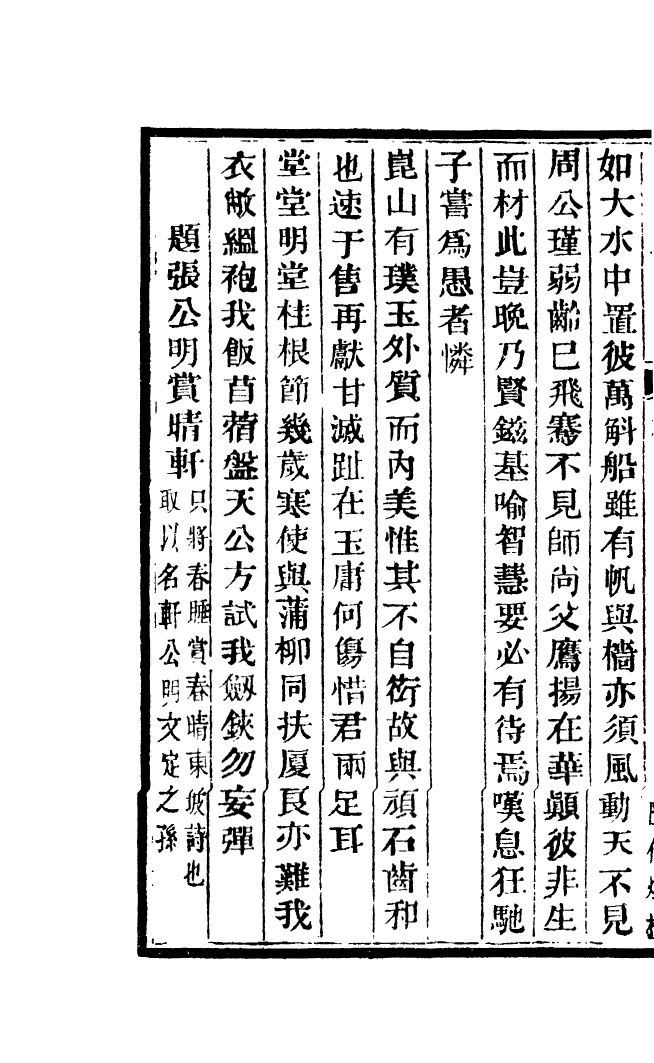 如大水中置彼萬斛船雖有帆與檣亦須風動天不見
周公瑾弱齡已飛騫不見師尚父鷹揚在華顛彼非生
而材此豈晚乃賢鎡基喻智慧要必有待焉嘆息狂馳
子嘗爲愚者憐
崑山有璞玉外質而內美惟其不自衒故與頑石齒和
也速于售再獻甘滅趾在玉庸何傷惜君兩足耳
堂堂明堂柱根節幾歲寒使與蒲柳同扶厦良亦難我
衣敝縕袍我飯苜蓿盤天公方試我劔鋏勿妄彈
題張公明賞晴軒
只將春睡賞春晴東坡詩也
取以名軒公明文定之孫